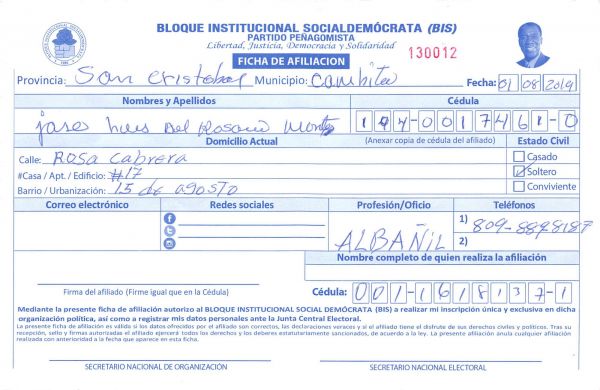 BLOQUE INSTITUCIONAL SOCIALDEMÓCRATA (BIS)
PARTIDO PEÑAGOMISTA
Libertad, Justicia, Democracia y Solidaridad
FICHA DE AFILIACION
130012
Provincia: San Cristobal Municipio: Cambita Fecha: 01 08 2019
Nombres y Apellidos Cédula
Luis Del Rosario 104-0017461-0
(Anexar copia de cédula del afiliado)
Domicilio Actual Estado Civil
Calle: ROSA Cabrera Casado
#Casa / Apt. / Edificio: #17 Soltero
Barrio / Urbanización: 15 de agosto Conviviente
Correo electrónico Redes sociales Profesión/Oficio Teléfonos
ALBAÑIL 1) 809-8898187
2)
Nombre completo de quien realiza la afiliación
Firma del afiliado (Firme igual que en la Cédula) Cédula: 001-1618137-1
Mediante la presente ficha de afiliación autorizo al BLOQUE INSTITUCIONAL SOCIAL DEMÓCRATA (BIS) a realizar mi inscripción única y exclusiva en dicha
organización política, así como a registrar mis datos personales ante la Junta Central Electoral.
La presente ficha de afiliación es válida si los datos ofrecidos por el afiliado son correctos, las declaraciones veraces y si el afiliado tiene el disfrute de sus derechos civiles y políticos. Tras su
recepción, sello y firmas autorizadas el afiliado ejercerá todos los derechos y los deberes estatutariamente sancionados, de acuerdo a la ley. La presente afiliación anula cualquier afiliación
realizada con anterioridad a la fecha que aparece en esta ficha.
SECRETARIO NACIONAL DE ORGANIZACIÓN SECRETARIO NACIONAL ELECTORAL